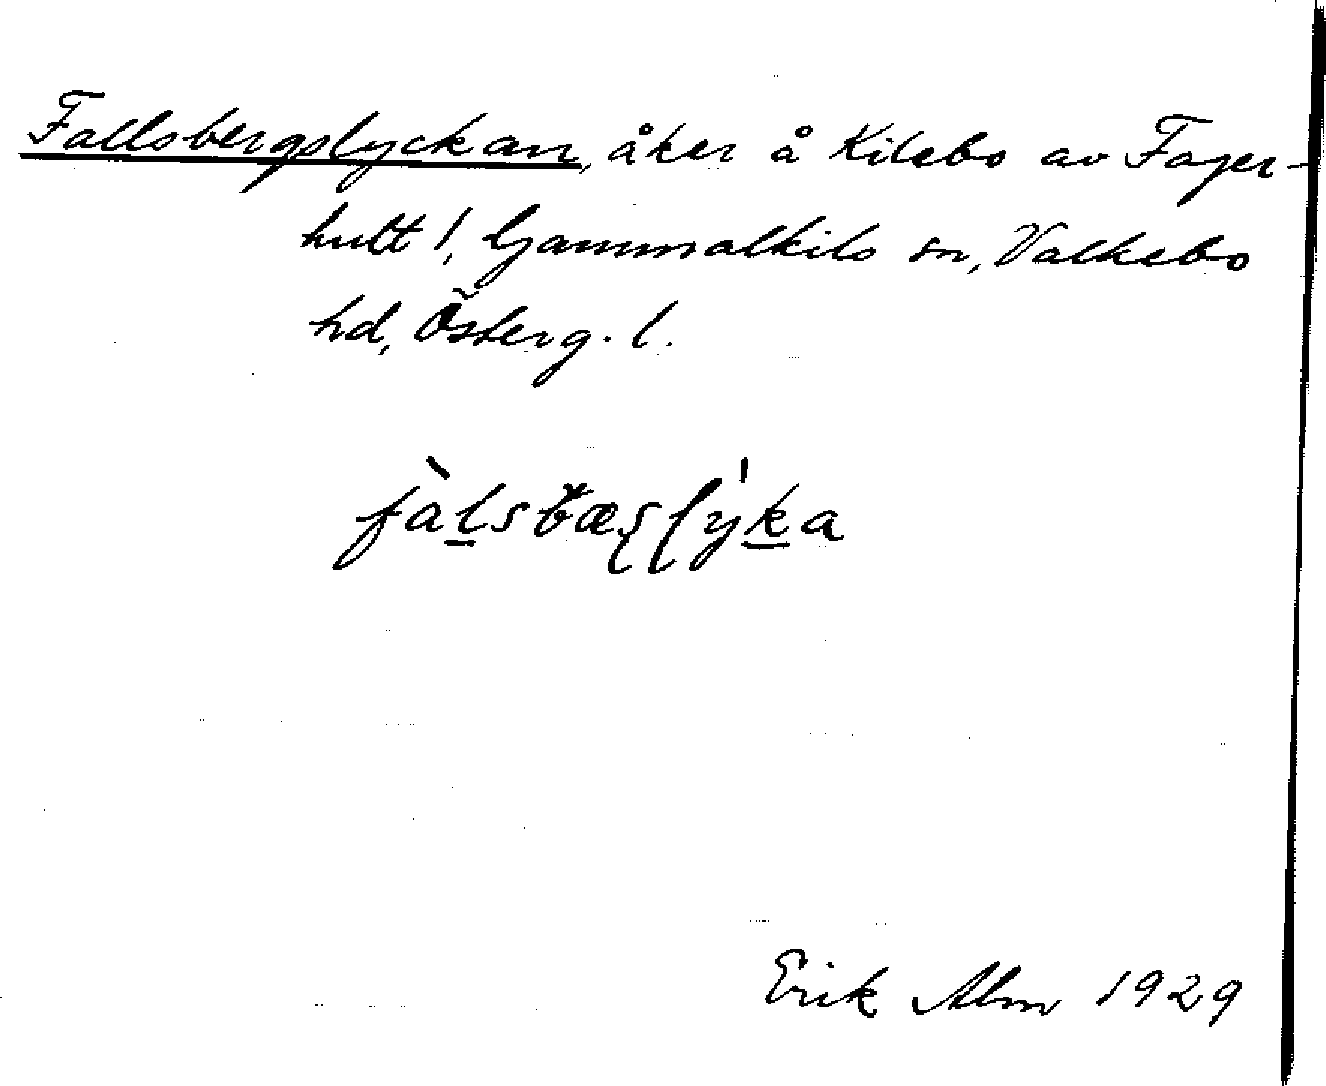 Fallsbergslyckan, åker å Kilebo av Fager-
hult 1, Gammalkils sn, Valkebo
hd, Österg. l.
fàlsbæʂlýka
Erik Alm 1929